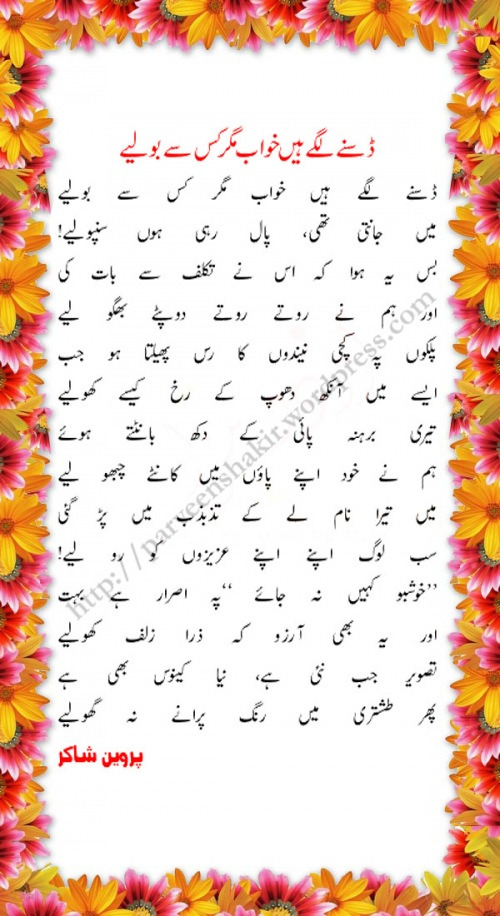 ڈسنے لگے ہیں خواب مگر کس سے بولیے
ڈسنے لگے ہیں خواب مگر کس سے بولیے
میں جانتی تھی، پال رہی ہوں سنپولیے!
بس یہ ہوا کہ اس نے تکلف سے بات کی
اور ہم نے روتے روتے دوپٹے بھگو لیے
پلکوں پہ کچی نیندوں کا رس پھیلتا ہو جب
ایسے میں آنکھ دھوپ کے رخ کیسے کھولیے
تیری برہنہ پائی کے دکھ بانٹتے ہوئے
ہم نے خود اپنے پاؤں میں کانٹے چبھو لیے
میں تیرا نام لے کے تذبذب میں پڑ گئی
سب لوگ اپنے اپنے عزیزوں کو رو لیے!
”خوشبو کہیں نہ جائے “پہ اصرار ہے بہت
اور یہ بھی آرزو کہ ذرا زلف کھولیے
تصویر جب نئی ہے، نیا کینوس بھی ہے
پھر طشتری میں رنگ پرانے نہ گھولیے
پروین شاکر
http://parveenshakir.wordpress.com